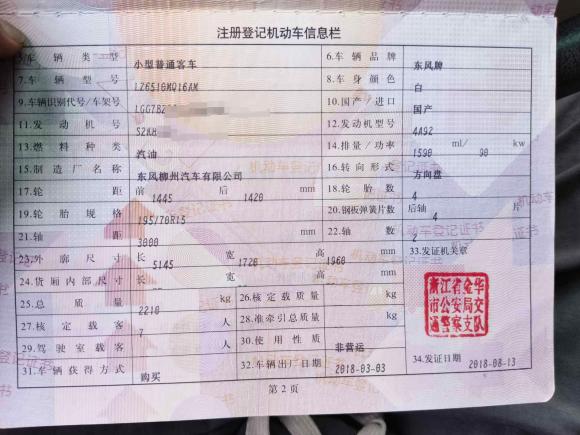 注册登记机动车信息栏
5.车辆类型 小型普通客车 6.车辆品牌 东风牌
7.车辆型号 LZ6510MQ16AM 8.车身颜色 白
9.车辆识别代号/车架号 LGG7B2 10.国产/进口 国产
11.发动机号 S2KH 12.发动机型号 4A92
13.燃料种类 汽油 14.排量/功率 1590 ml/ 90 kw
15.制造厂名称 东风柳州汽车有限公司 16.转向形式 方向盘
17.轮距 前 1445 后 1420 mm 18.轮胎数 4
19.轮胎规格 195/70R15 20.钢板弹簧片数 后轴 4 片
21.轴距 3000 mm 22.轴数 2
23.外廓尺寸 长 5145 宽 1720 高 1960 mm 33.发证机关章
24.货厢内部尺寸 长 宽 高 mm
浙江省金华市公安局交通警察支队
25.总质量 2210 kg 26.核定载质量 kg
27.核定载客 7 人 28.准牵引总质量 kg
29.驾驶室载客 人 30.使用性质 非营运
31.车辆获得方式 购买 32.车辆出厂日期 2018-03-03 34.发证日期 2018-08-13
第2页